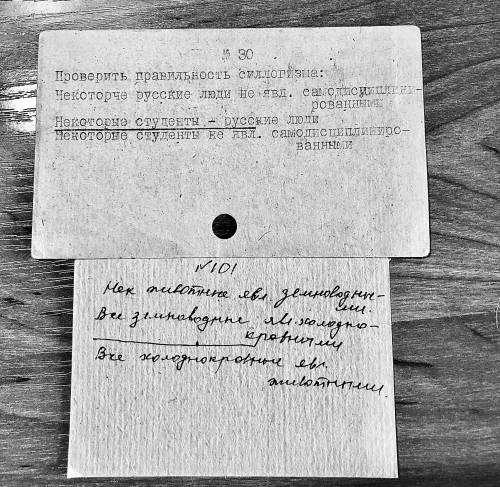 № 30
Проверить правильность силлогизма:
Некоторче русские люди не явл. самодисциплини-
рованными
Некоторые студенты – русские люди
Некоторые студенты не явл. самодисциплиниро-
ванными
№101
Нек животные явл земноводны-
ми.
Все земноводные явл холодно-
кровными
Все холоднокровные явл.
животными.